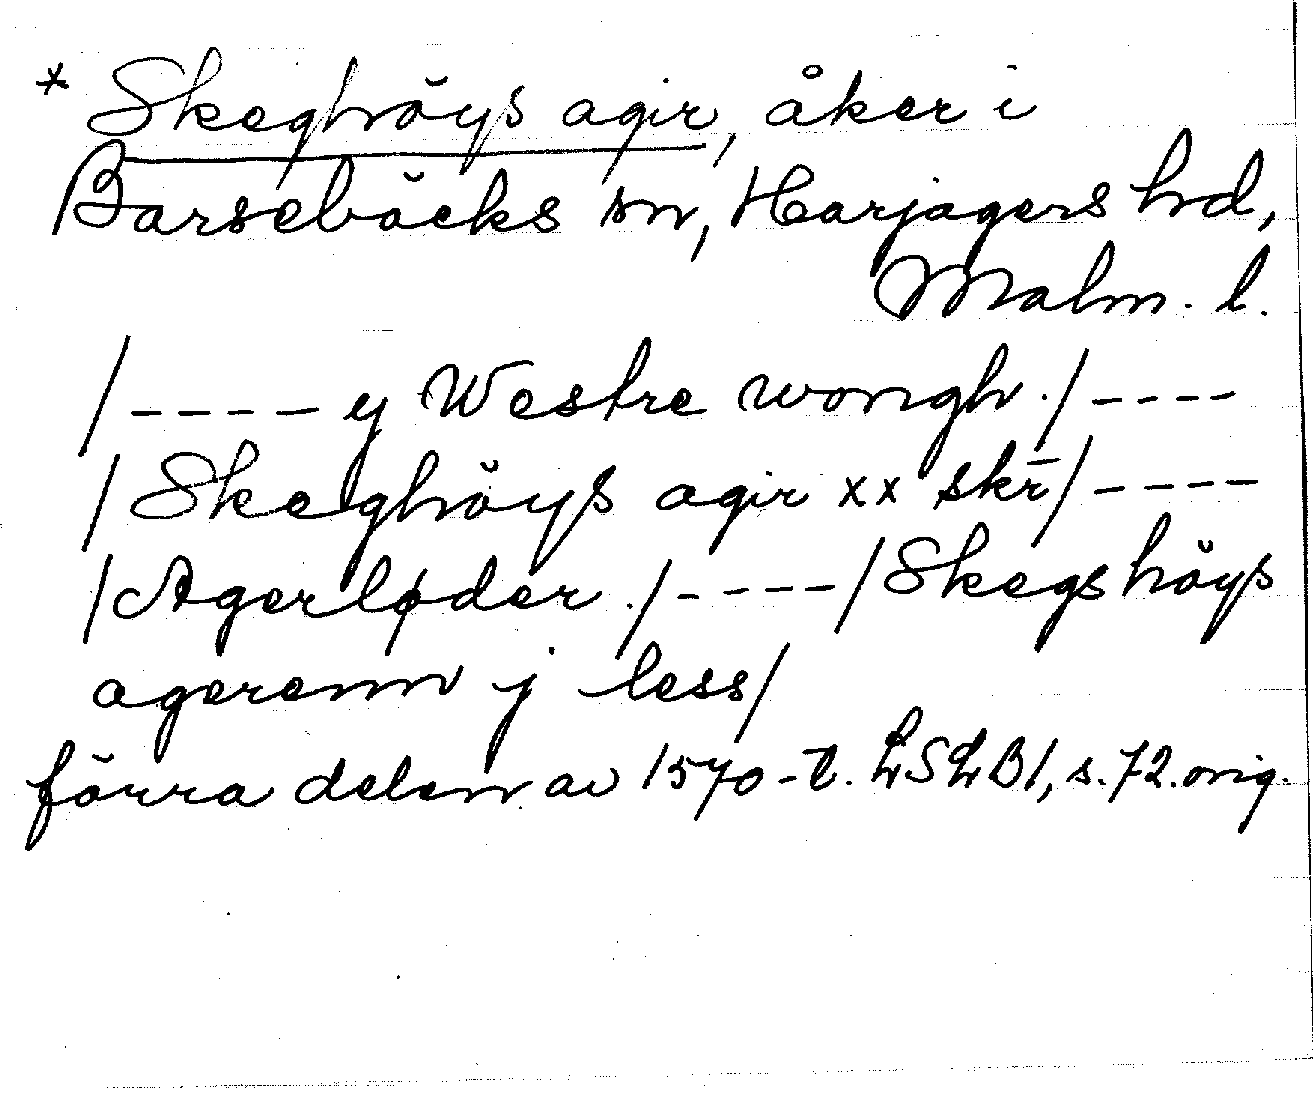 * Skeghöys agir, åker i
Barsebäcks sn, Harjagers hd,
Malm. l.
/ ----- y Westre wongh ./ ----
/ Skeghöys agir xx skr̄ / ----
/ Agerløder ./ ----- / Skegshöys
agerenn j less /
förra delen av 1570-t. LSLB1, s. 72. orig.